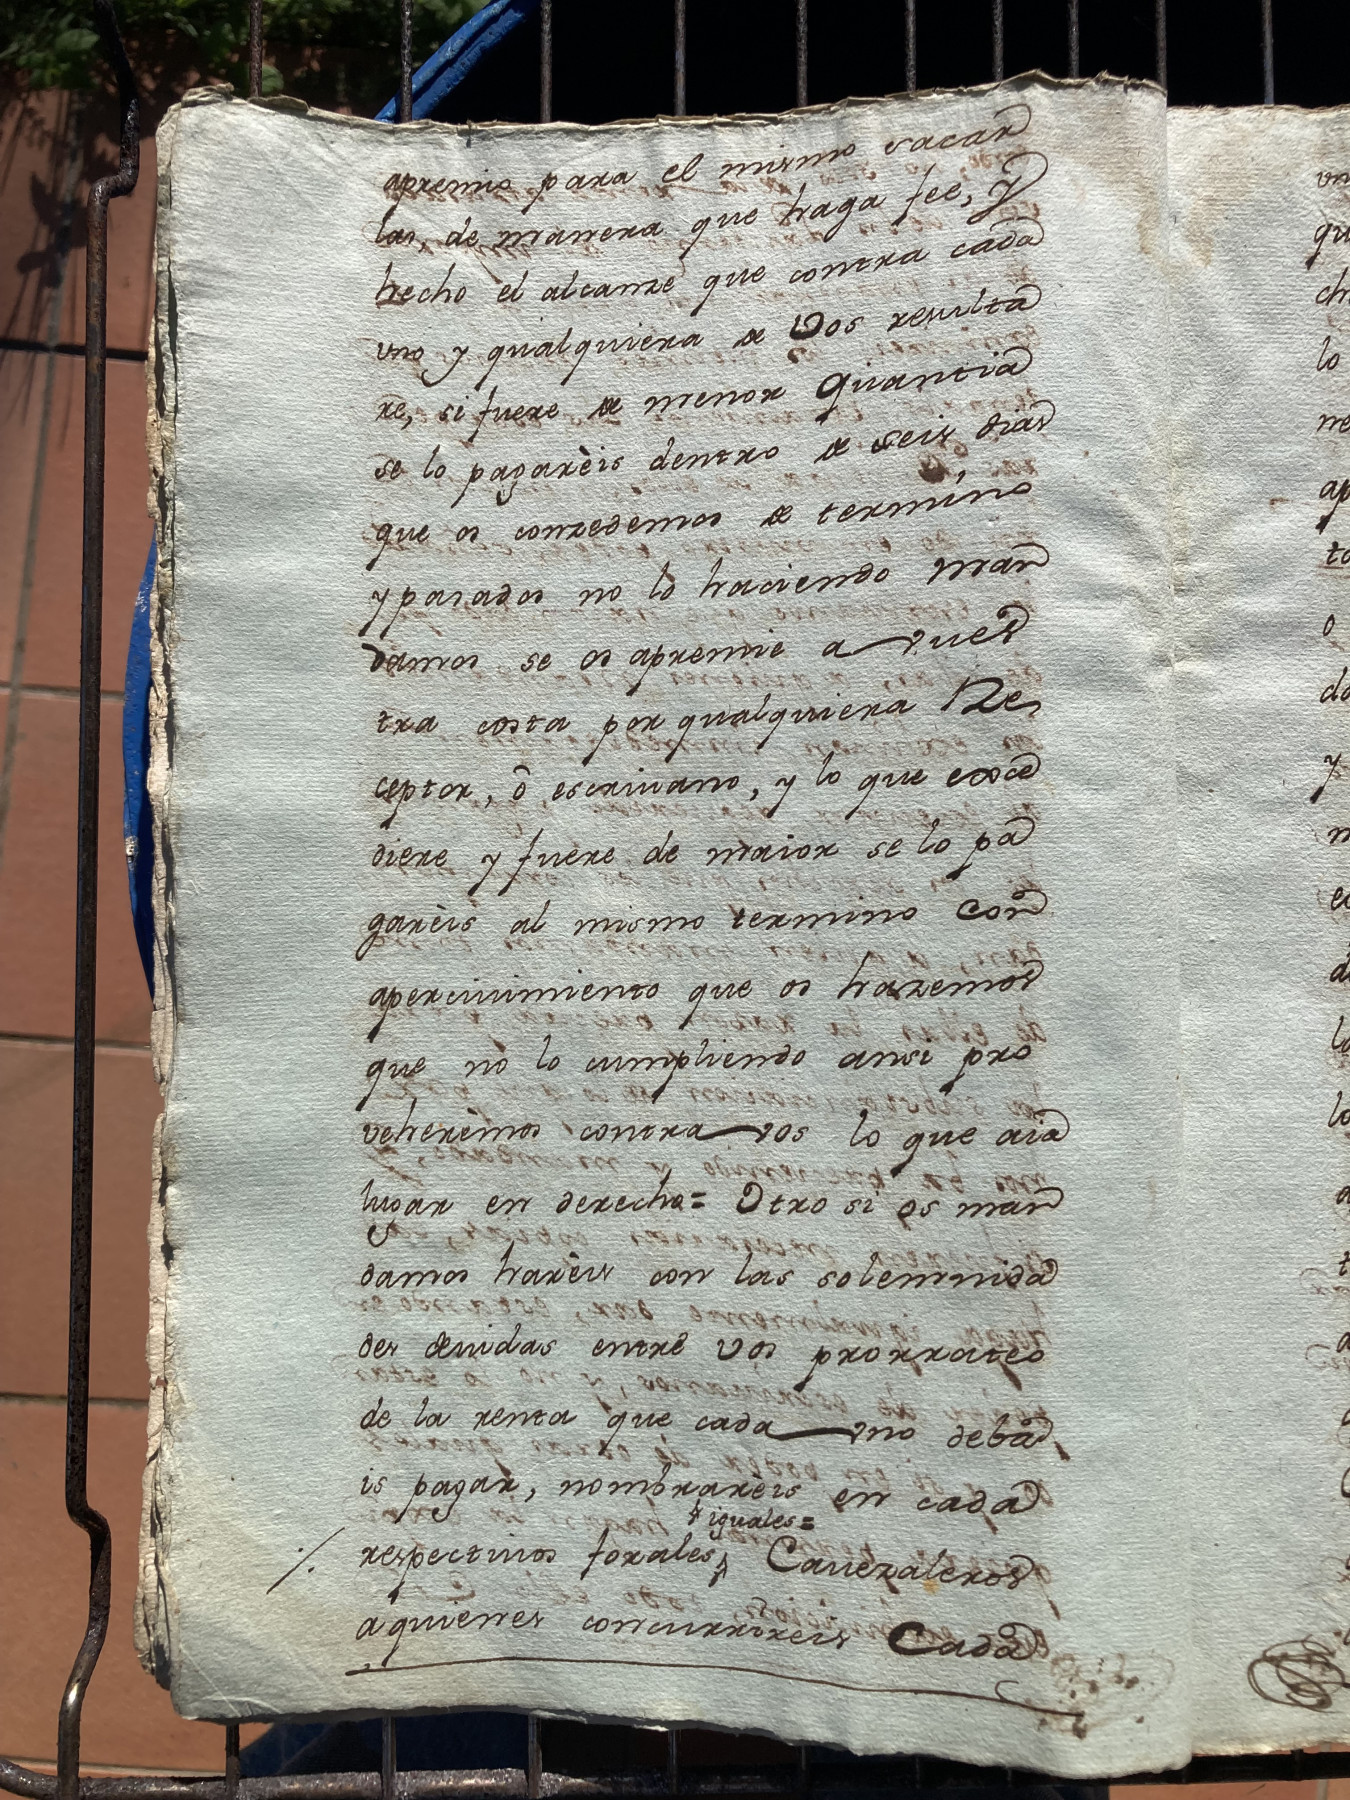 apremio para el mismo sacar
las, de manera que haga fee, y
hecho el alcanze que contra cada
uno y qualquiera de Vos resulta
re, si fuere de menor quantia
se lo pagarèis dentro de seis dias
que os conzedemos de termino
y pasados no lo haciendo man
damos se os apremie a vues
tra costa por qualquiera Re
ceptor, ô escrivano, y lo que exce
diere y fuere de maior se lo pa
garèis al mismo termino con
apercivimiento que os hazemos
que no lo cumpliendo ansi pro
veherèmos contra vos lo que aia
lugar en derecho = Otro si os man
damos harèis con las solemnida
des devidas entre Vos prorrateo
de la renta que cada uno deba
is pagar, nombrarèis en cada
iguales =
respectivos forales, Cavezaleros
a quienes concurrireis Cada
vn
qu
ch
lo
ne
ap
to
o
do
y